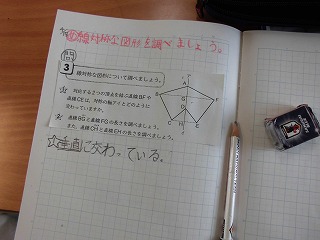 線対称な図形を調べましょう。
問
3
線対称な図形について調べましょう。
対応する2つの頂点を結ぶ直線BFや
直線CEは、対称の軸アイとどのように
交わっていますか。
直線BGと直線FGの長さを調べましょう。
また、直線CHと直線EHの長さを調べましょう。
B
F
G
C
H
E
D
垂直に交わっている。